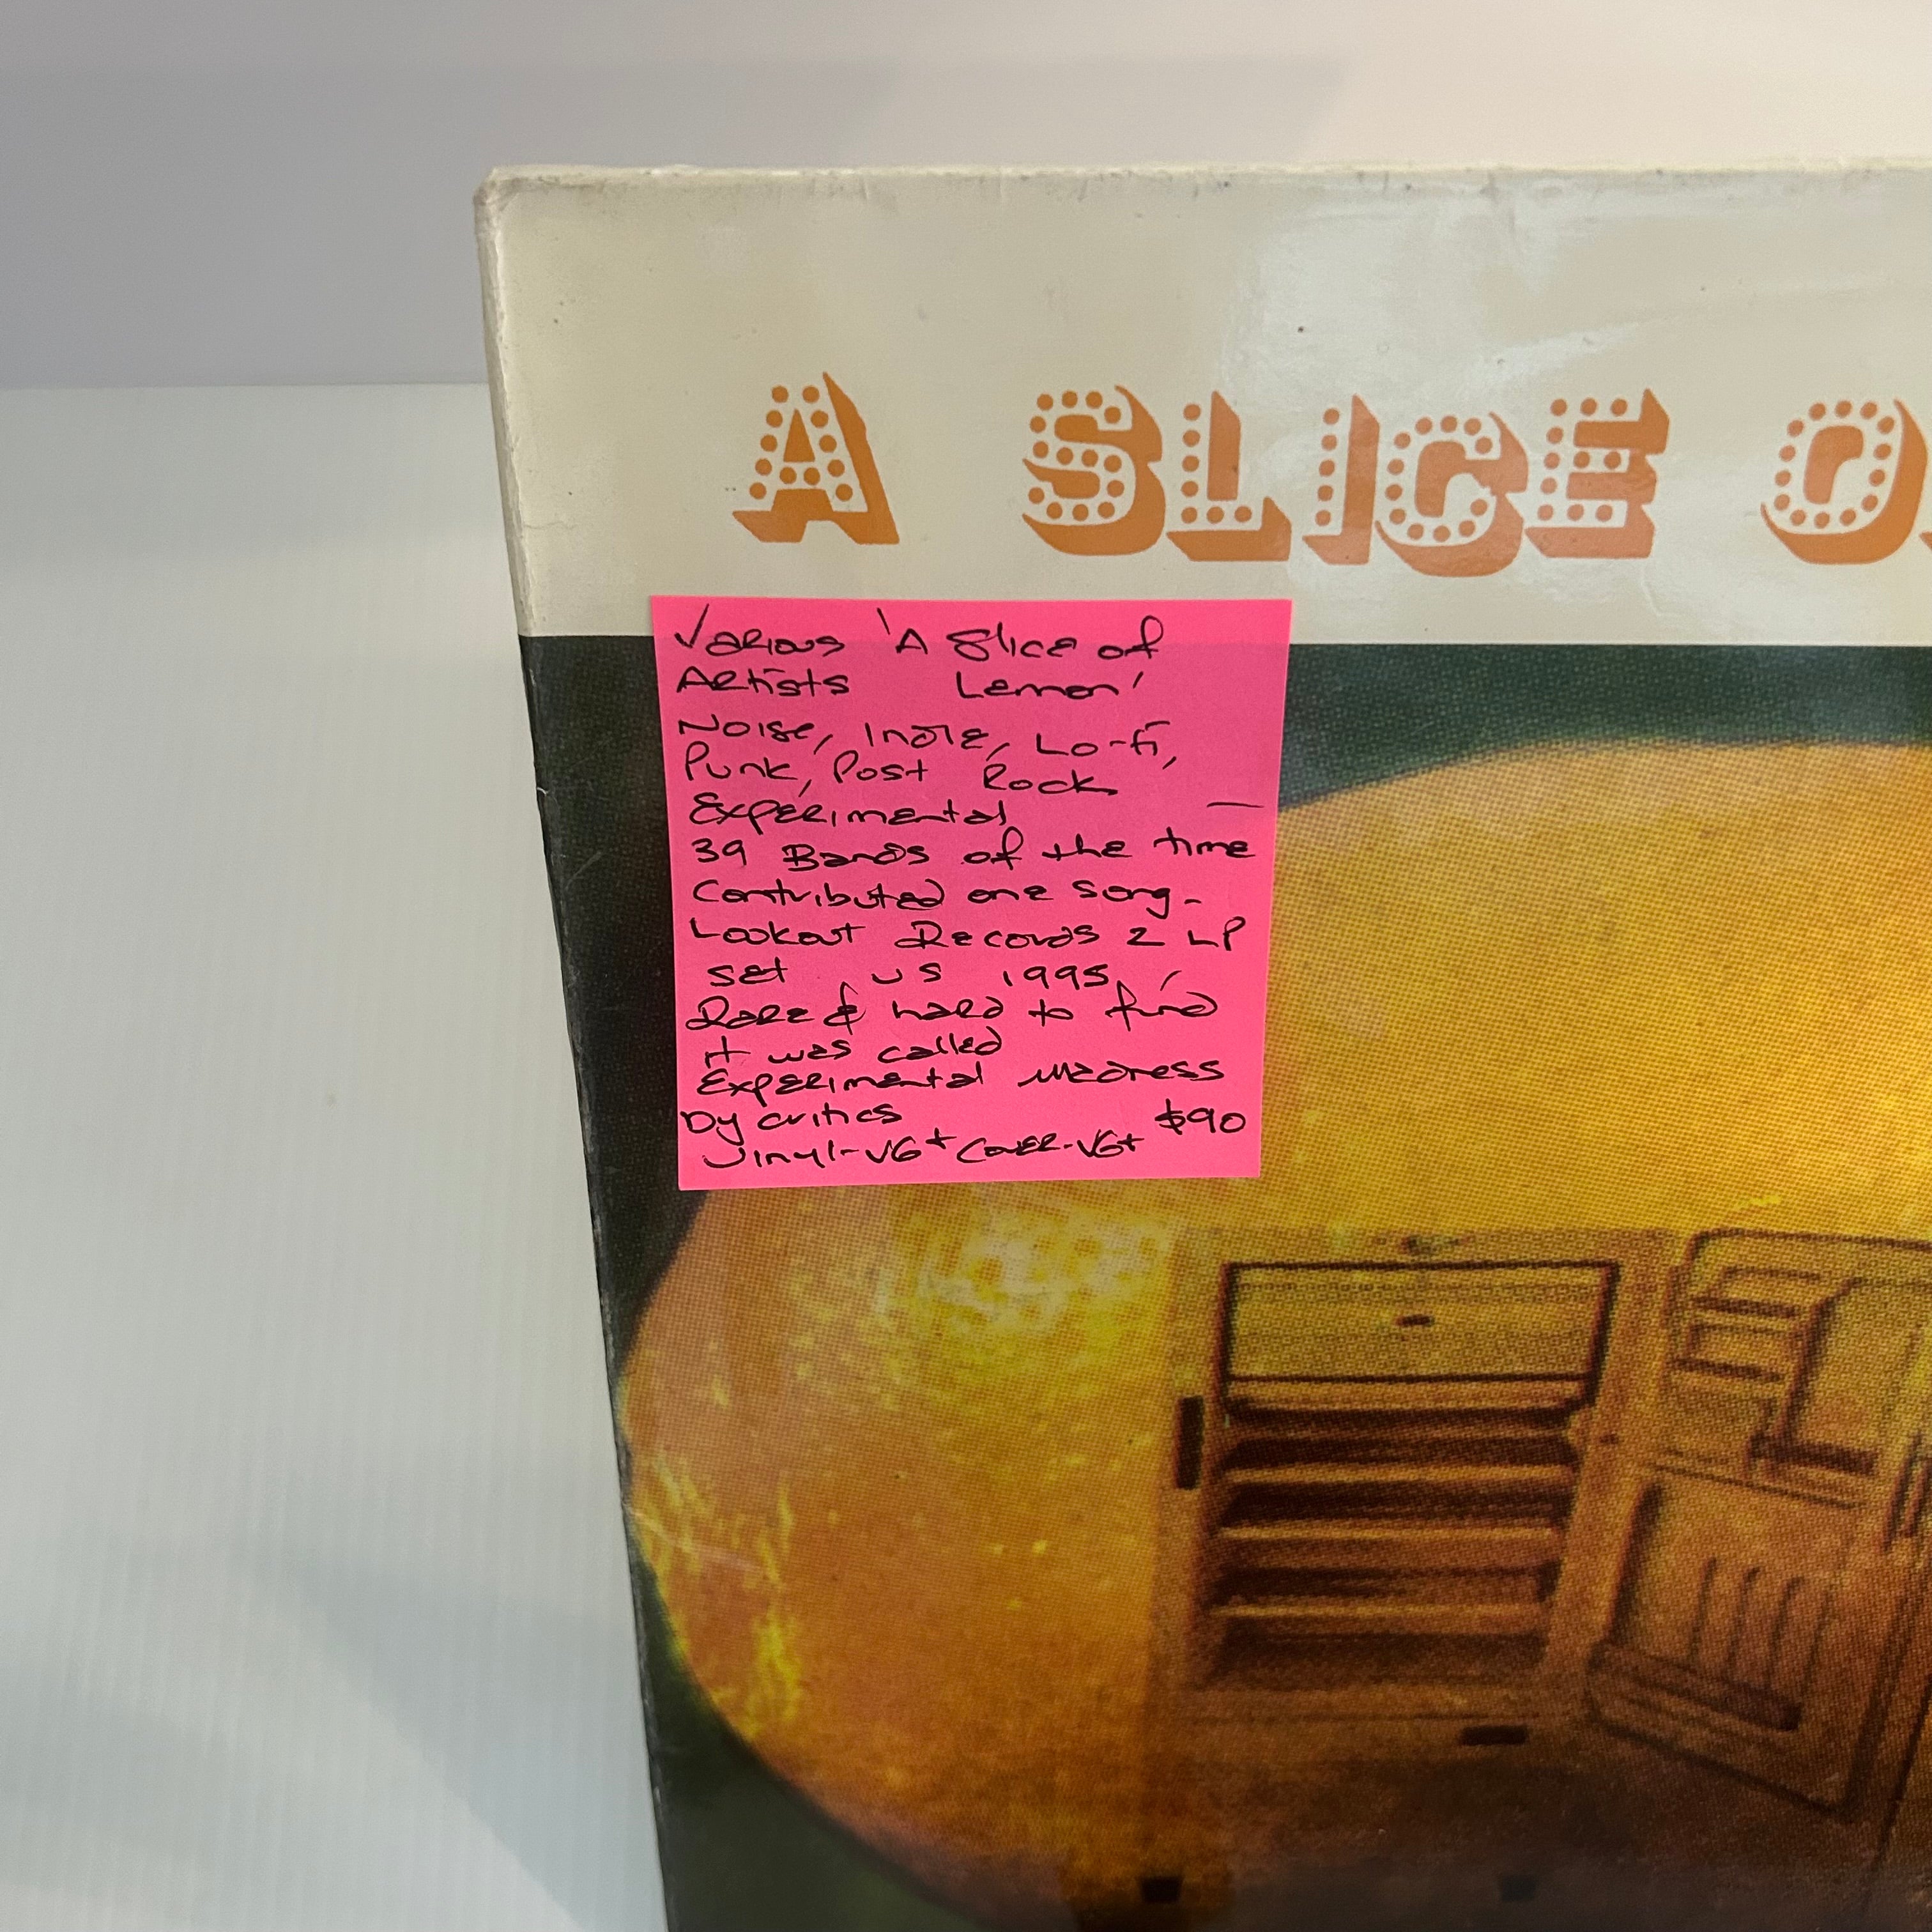 A SLICE O
Various 'A Slice of
Artists Lemon'
Noise, Indie, Lo-fi,
Punk, Post Rock
Experimental —
39 Bands of the time
Contributed one song-
Lookout Records 2 LP
set, US 1995,
Rare & hard to find
it was called
Experimental madness
by critics $90
Vinyl-VG+ Cover-VG+